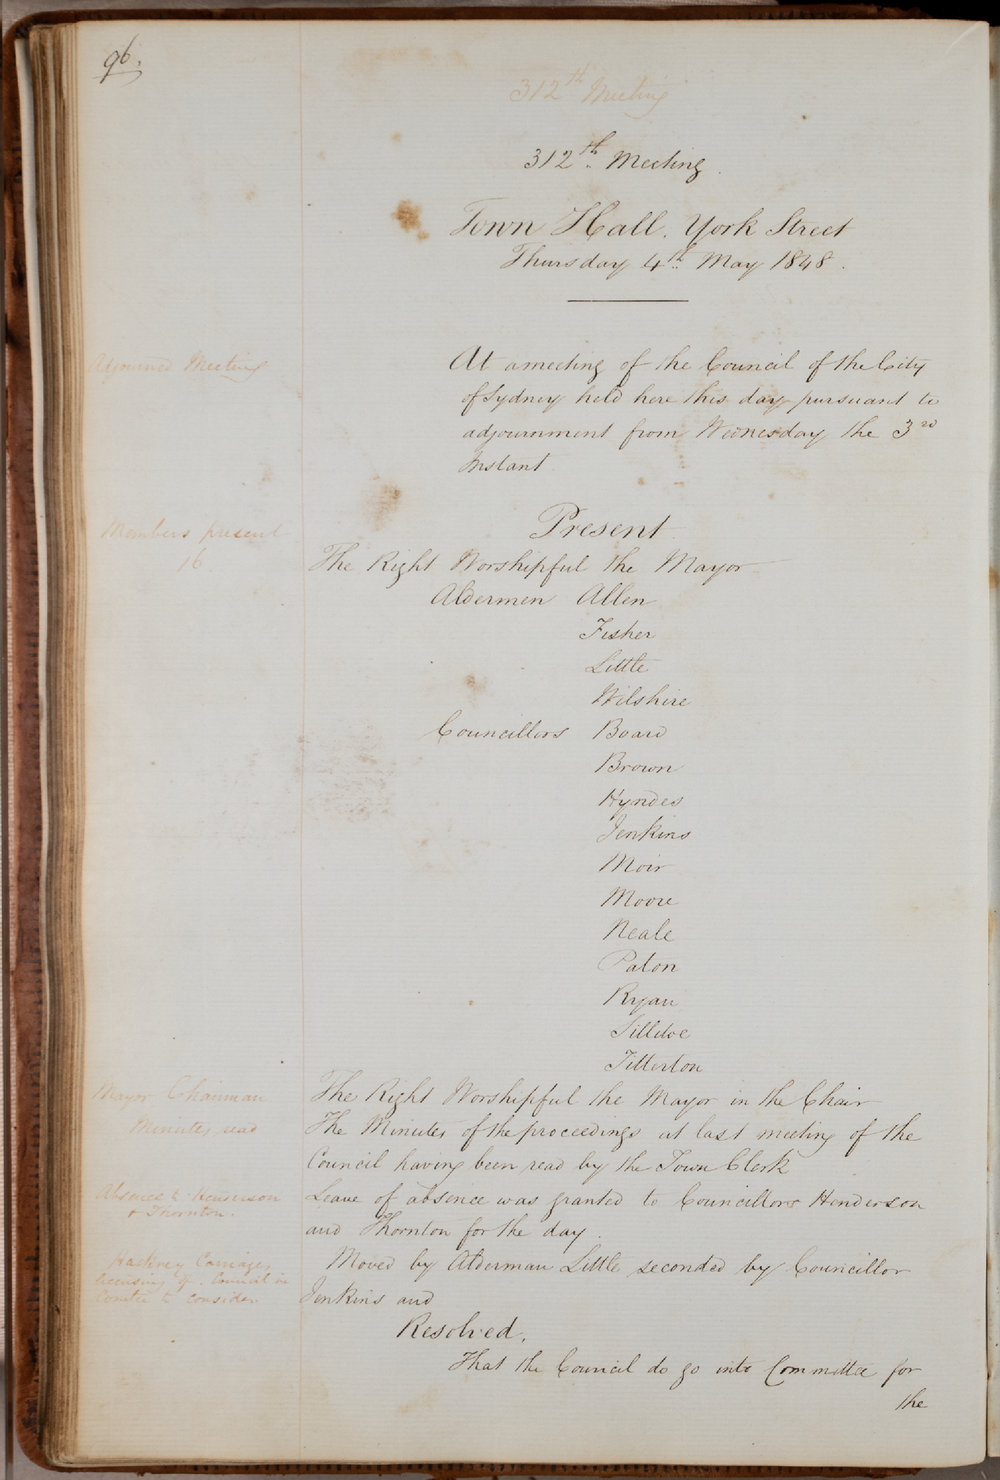 96.
312th Meeting
312th Meeting.
Town Hall. York Street
Thursday 4th May 1848.
Adjourned Meeting
At a meeting of the Council of the City
of Sydney held here this day pursuant to
adjournment from Wednesday the 3rd
Instant
Present
Members present
16
The Right Worshipful the Mayor
Aldermen Allen
Fisher
Little
Wilshire
Councillors Board
Brown
Hyndes
Jenkins
Moir
Moore
Neale
Paton
Ryan
Sillitoe
Titterton
Mayor Chairman
The Right Worshipful the Mayor in the Chair
Minutes read
The Minutes of the proceedings at last meeting of the
Council having been read by the Town Clerk
Absence to Henderson
& Thornton.
Leave of absence was granted to Councillors Henderson
and Thornton for the day.
Hackney Carriages
licensing of. Council in
Comtee to consider
Moved by Alderman Little seconded by Councillor
Jenkins and
Resolved.
That the Council do go into Committee for
the